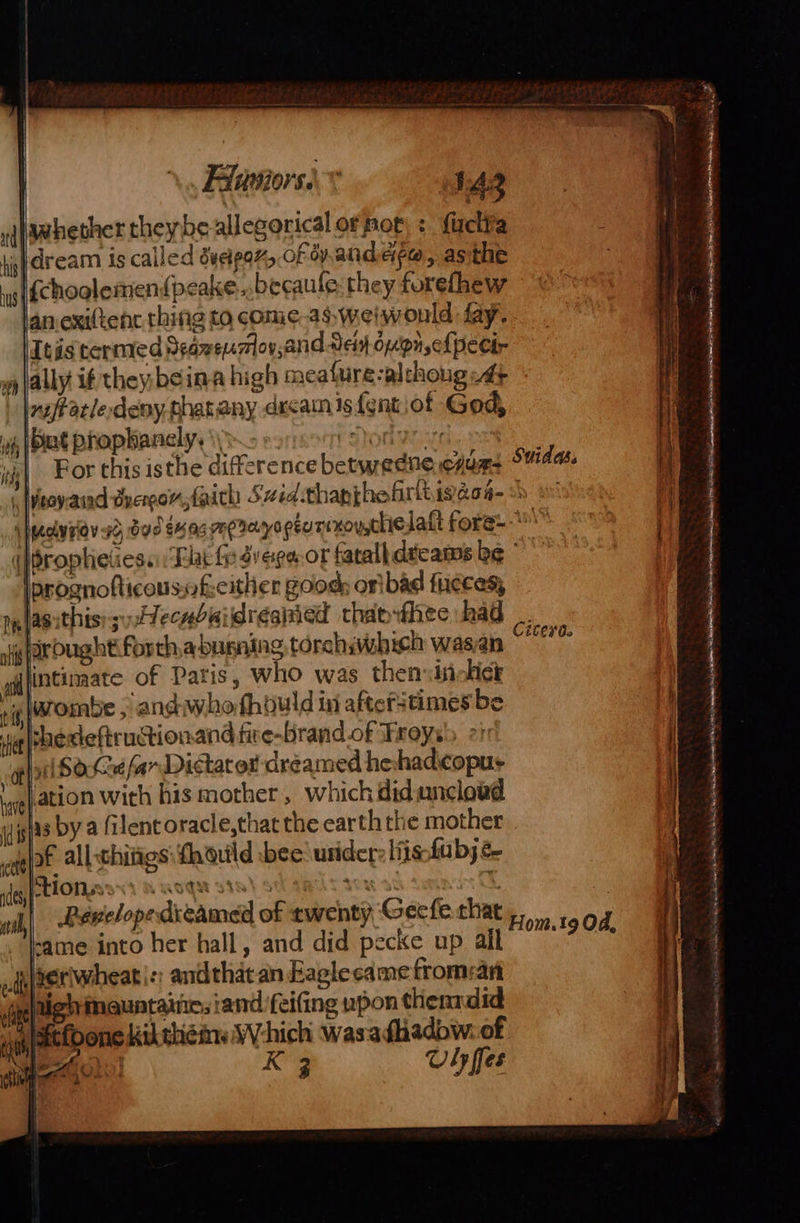 Humors. 143
whether they be allegorical or not : such a
dream is called ὄνειρος, of ὂν and εἴρω, as the
schoolemen speake, because they foreshew
an existent thing to come as we would say.
It is termed and especi-
ally if they be in a high measure: although
deny that any dream is sent of God,
but prophanely.
For this is the difference betweene
and ὄνειρον, saith Suid. that the first is
the last fore-
prophecies. The so or fatall dreams be
prognosticous of either good, or bad success,
as this; Hecuba dreamed that shee had
brought forth a burning torch, which was an
intimate of Paris, who was then in her
wombe, and who should in after-times be
the destruction and fire-brand of Troy.
So Cæsar Dictator dreamed he had copu-
lation with his mother, which did uncloud
as by a silent oracle, that the earth the mother
of all things should bee under his subje-
ction.
Penelope dreamed of twenty Geese that
came into her hall, and did pecke up all
her wheat : and that an Eagle came from an
high mountaine, and seising upon them did
eftsoone kil them. Which was a shadow of
K 3 Ulysses
Suidas.
Cicero.
Hom. 19 Od,